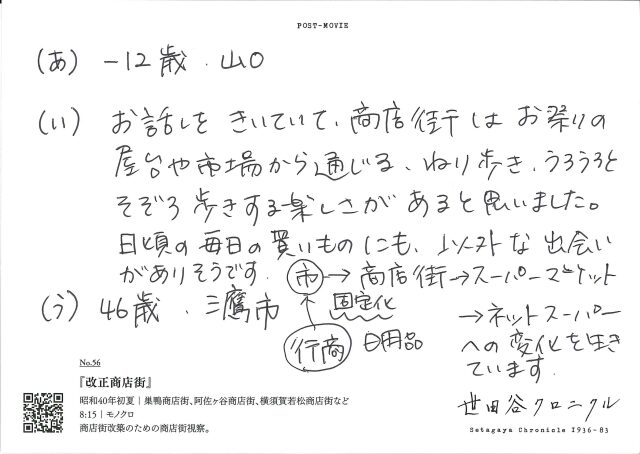 POST-MOVIE
(あ) -12歳.山口
(い) お話しをきいていて、商店街はお祭りの
屋台や市場から通じる、ねり歩き、うろうろと
そぞろ歩きする楽しさがあると思いました。
日頃の毎日の買いものにも、以外な出会い
がありそうです. 市→商店街→スーパーマーケット
(う) 46歳.三鷹市
固定化
→ネットスーパー
行商 日用品
への変化を生き
ています.
No.56
『改正商店街』
昭和40年初夏|巣鴨商店街、阿佐ヶ谷商店街、横須賀若松商店街など
8:15|モノクロ
商店街改築のための商店街視察。
世田谷クロニクル
Setagaya Chronicle 1936-83